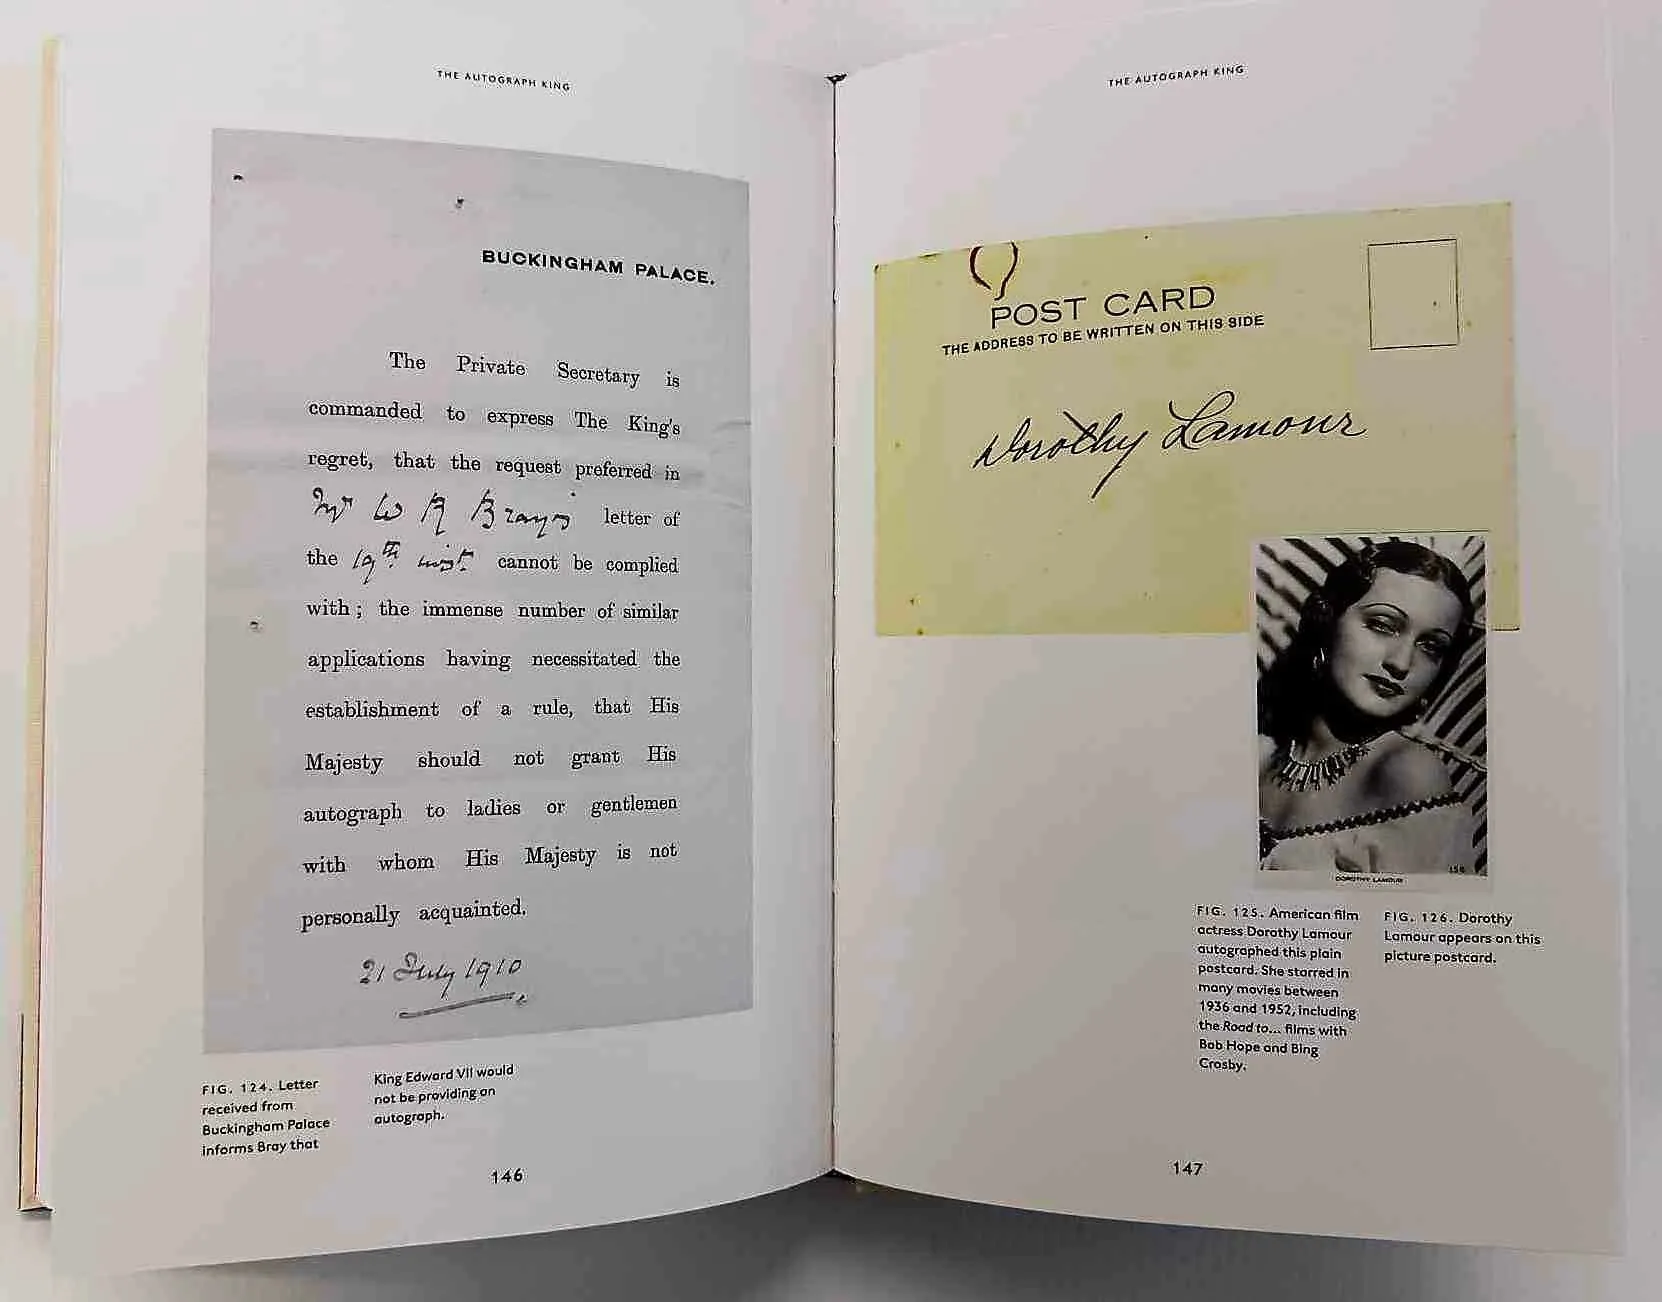 THE AUTOGRAPH KING
BUCKINGHAM PALACE.
The Private Secretary is
commanded to express The King's
regret, that the request preferred in
Mr W R Bray's letter of
the 19th inst. cannot be complied
with; the immense number of similar
applications having necessitated the
establishment of a rule, that His
Majesty should not grant His
autograph to ladies or gentlemen
with whom His Majesty is not
personally acquainted.
21 July 1910
FIG. 124. Letter
received from
Buckingham Palace
informs Bray that
King Edward VII would
not be providing an
autograph.
146
THE AUTOGRAPH KING
POST CARD
THE ADDRESS TO BE WRITTEN ON THIS SIDE
Dorothy Lamour
158
DOROTHY LAMOUR
FIG. 125. American film
actress Dorothy Lamour
autographed this plain
postcard. She starred in
many movies between
1936 and 1952, including
the Road to... films with
Bob Hope and Bing
Crosby.
FIG. 126. Dorothy
Lamour appears on this
picture postcard.
147